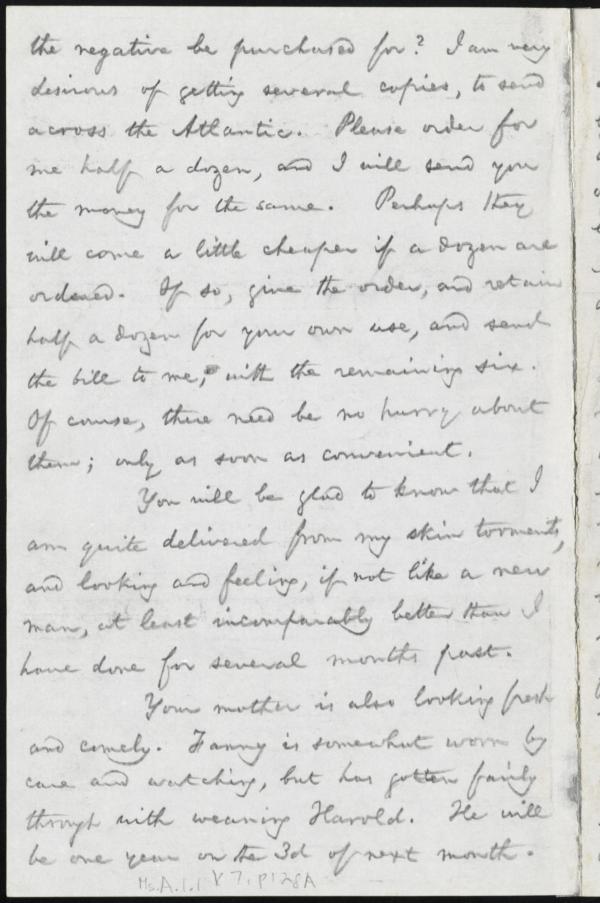 the negative be purchased for? I am very
desirous of getting several copies, to send
across the Atlantic. Please order for
me half a dozen, and I will send you
the money for the same. Perhaps they
will come a little cheaper if a dozen are
ordered. If so, give the order, and retain
half a dozen for your own use, and send
the bill to me, with the remaining six.
Of course, there need be no hurry about
them; only as soon as convenient.
You will be glad to know that I
am quite delivered from my skin torments,
and looking and feeling, if not like a new
man, at least incomparably better than I
have done for several months past.
Your mother is also looking fresh
and comely. Fanny is somewhat worn by
care and watching, but has gotten fairly
through with weaning Harold. He will
be one year on the 3d of next month.
Ms.A.1.1 V.7, p.128A